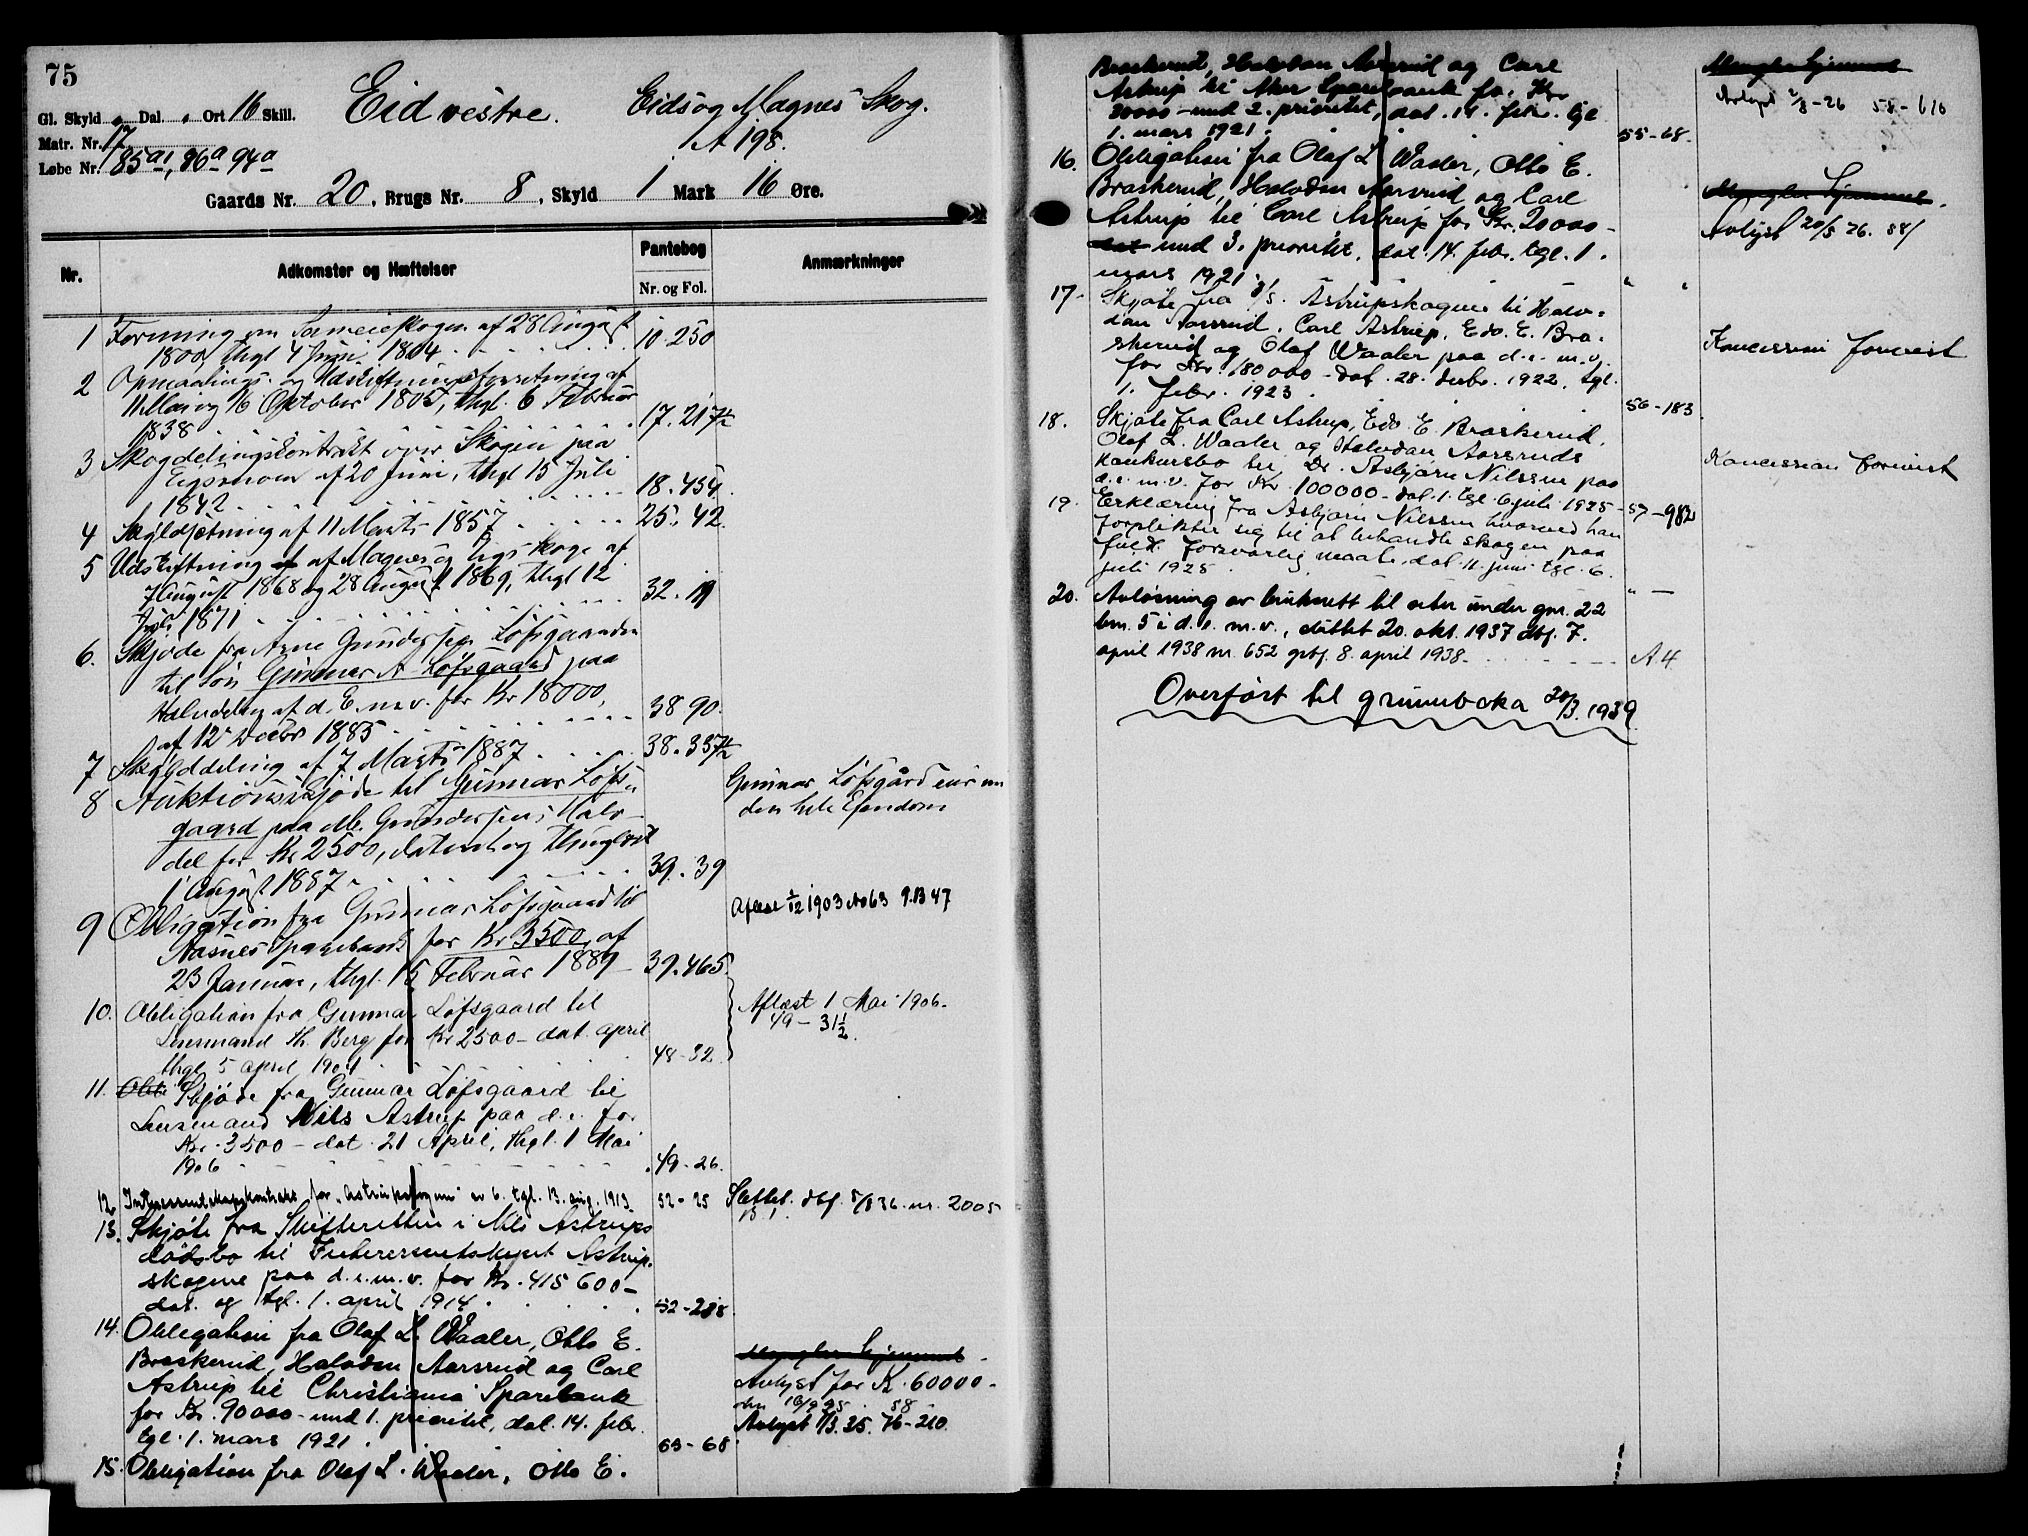 75
Gl. Skyld „ Dal. „ Ort 16 Skill. Eid vestre. Eids og Magnes Skog.
Matr. Nr. 17 A 198.
Løbe Nr. 85a1, 86a 94a
Gaards Nr. 20, Brugs Nr. 8, Skyld 1 Mark 16 Øre.
Nr. Adkomster og Hæftelser Pantebog Nr. og Fol. Anmærkninger
1 Forening om Sameieskogen af 28 August
1800, thgl 4 Juni 1804 10.250
2 Opmaalings- og Udskiftningsforretning af
11 Mai og 16 Oktober 1805, thgl. 6 Februar
1838 17.217½
3 Skogdelingskontrakt over Skogen paa
af 20 Juni, thgl 15 Juli
1842 18.454.
4 Skyldsætning af 11 Marts 1857 25.42.
5 Udskiftning af Magnes og Eigs Skoge af
7 August 1868 og 28 August 1869, thgl 12
1871 32.19
6. Skjøde fra Arne Gundersen Løfsgaarden
til Søn Gunnar A Løfsgaard paa
Halvdelen af d. E. m. v. for Kr 18000,
af 12 Decbr 1885 38 90.
7 Skylddeling af 7 Marts 1887 38.357½
8 Auktionsskjøde til Gunnar Løfs-
gaard paa Gundersens Halv-
del for Kr 2500, dateret og thinglæst
1 August 1887 39.39
Gunnar Løfsgård eier nu
den hele Eiendom
9 Obligation fra Gunnar Løfsgaard til
Aasnes Sparebank for Kr 3500, af
23 Januar, thgl. 15 Februar 1889 39.465.
Aflæst 1/12 1903 No 63 9.B 47
10. Obligation fra Gunnar Løfsgaard til
Lensmand Th. Berg for Kr 2500 - dat april
thgl 5 april 1904 48-32
Aflæst 1 Mai 1906.
49 - 31½.
11. Obli Skjøde fra Gunnar Løfsgaard til
Lensmand Nils Astrup paa d. e. for
Kr. 3500 - dat. 21 April, thgl. 1 Mai
1906 49-26.
12. Interessentskapskontrakt for „Astrupskogene" av 6. tgl. 13. aug. 1913 52-25 Slettet. dbf. 5/8 36. nr. 2005
13. Skjøte fra Skifteretten i Nils Astrups
dødsbo til Interessentskapet Astrup-
skogene paa d. e. m. v. for Kr. 415 600 -
dat. og tgl. 1. april 1914. 52-288
14. Obligation fra Olaf L. Waaler, Otto E.
Braskerud, Halvdan Aarsrud og Carl
Astrup til Christiania Sparebank
for Kr. 90000 - med 1. prioritet, dat. 14. febr.
tgl. 1. mars 1921 . . 55-68
Mangler hjemmel -
Avlyst for Kr. 60000 -
Avlyst 1/3. 35. 76-210.
15. Obligation fra Olaf L. Waaler, Otto E.
Braskerud, Halvdan Aarsrud og Carl
Astrup til Aker Sparebank for Kr
20000 - med 2. prioritet, dat. 14. febr. tgl
1. mars 1921. 55-68.
Mangler hjemmel
Avlyst 2/8-26 58-616
16. Obligation fra Olaf L. Waaler, Otto E.
Braskerud, Halvdan Aarsrud og Carl
Astrup til Carl Astrup for Kr. 20000 -
dat med 3. prioritet, dat. 14. febr. tgl. 1.
mars 1921 " "
Mangler hjemmel.
Avlyst 20/5 26. 58/
17. Skjøte fra I/S. Astrupskogene til Halv-
dan Aarsrud, Carl Astrup, Edv. E. Bra-
skerud og Olaf Waaler paa d. e. m. v.
for Kr. 180000 - dat. 28. decbr. 1922, tgl.
1. febr. 1923 56-183
Koncession forevist
18. Skjøte fra Carl Astrup, Edv. E. Braskerud,
Olaf L. Waaler og Halvdan Aarsruds
konkursbo til Dr. Asbjørn Nilssen paa
d. e. m. v. for Kr 100000 - dat. 1. tgl. 6 juli 1925 - 57-982
Koncession forevist
19. Erklæring fra Asbjørn Nilssen hvorved han
forplikter sig til at behandle skogen paa
fuldt forsvarlig maate, dat. 11. juni tgl. 6.
juli 1925 " —
20. Avløsning av bruksrett til seter under gnr. 22
bnr. 5 i d. e. m. v., sluttet 20. okt. 1937 dbf. 7.
april 1938 nr. 652 grbf. 8. april 1938. A 4
Overført til grunnboka 20/3. 1939